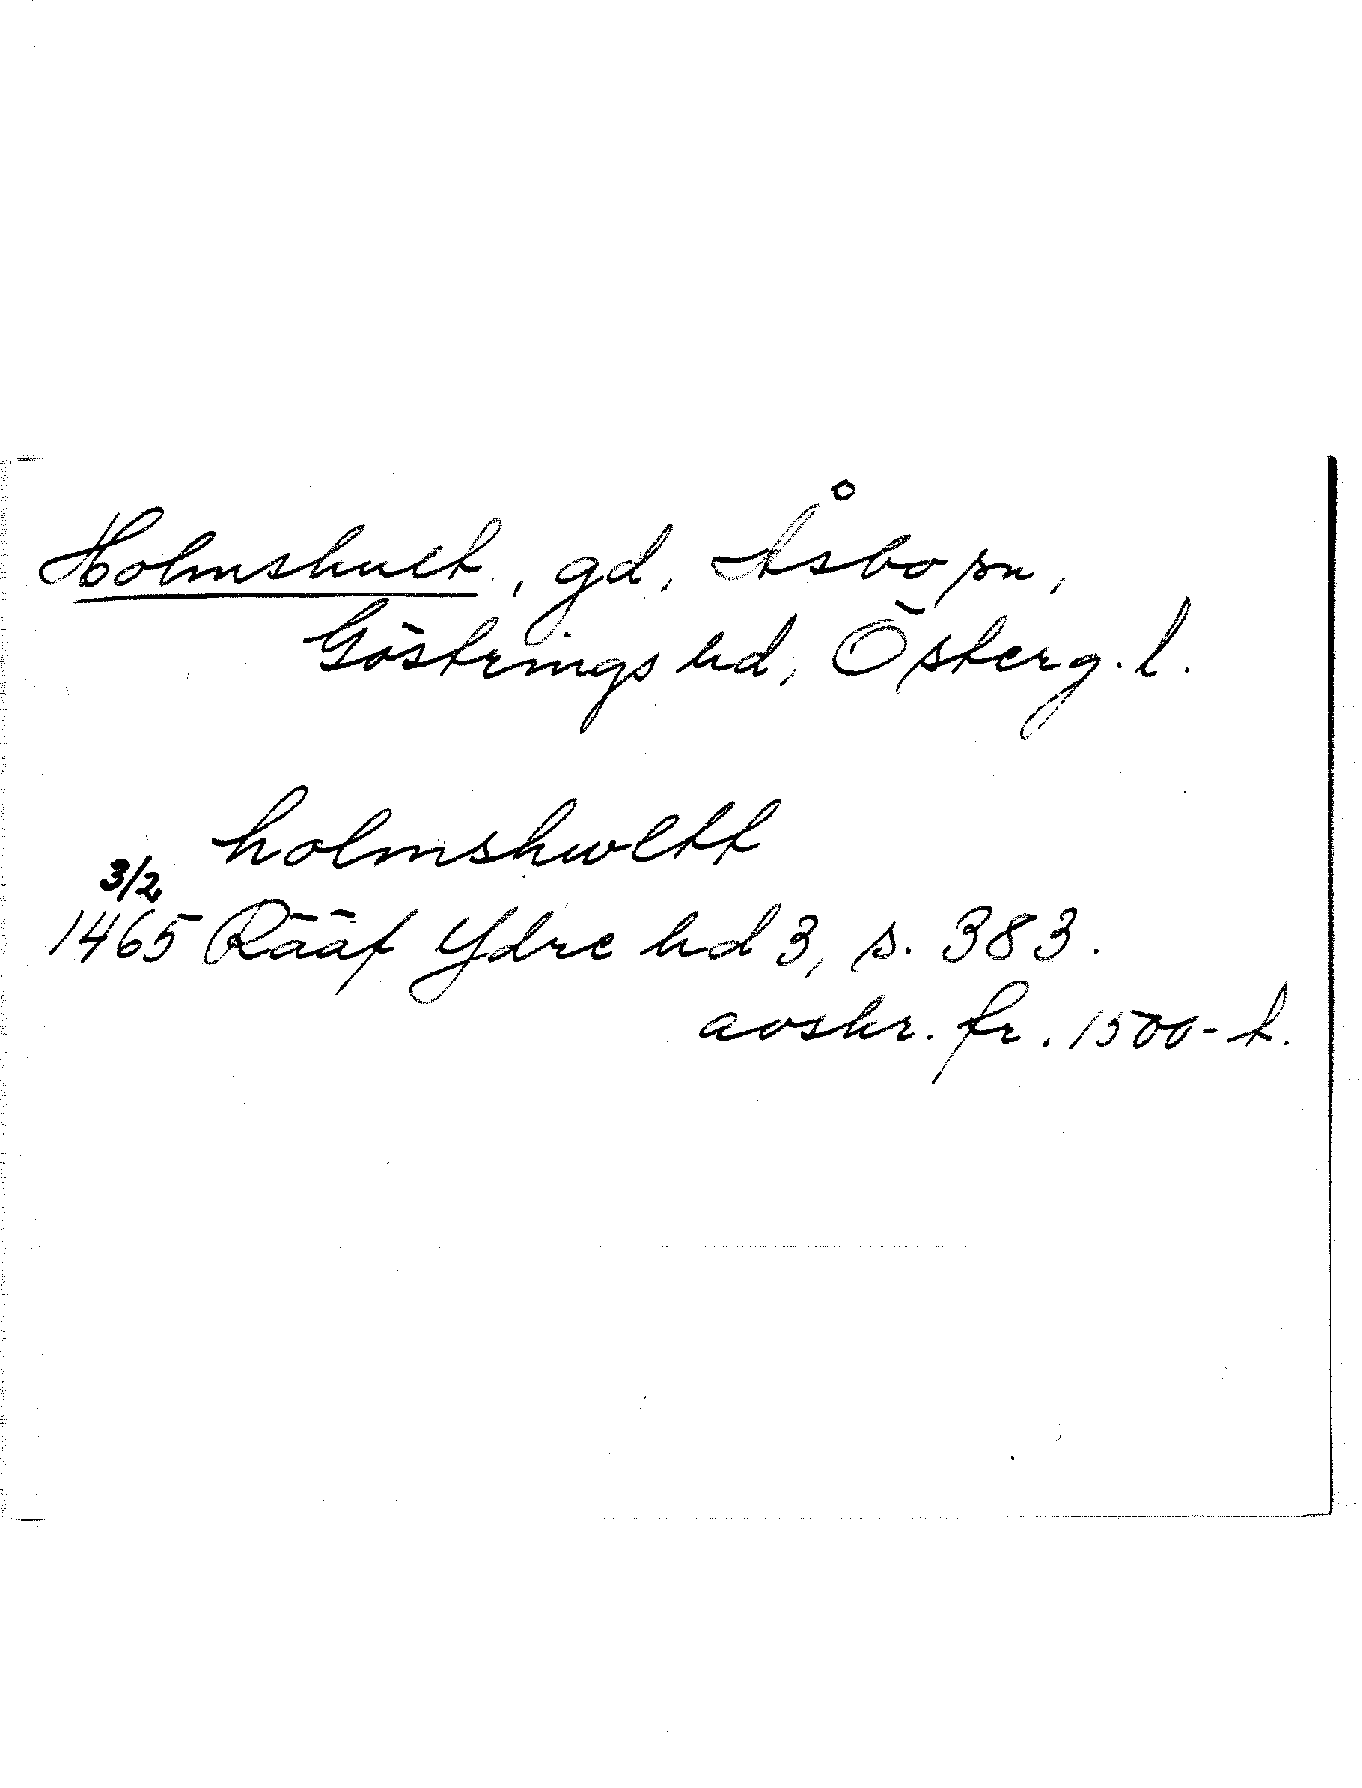 Holmshult, gd, Åsbo sn,
Göstrings hd, Österg. l.
holmshwltt
3/2
1465 Rääf Ydre hd 3, s. 383.
avskr. fr. 1500-t.